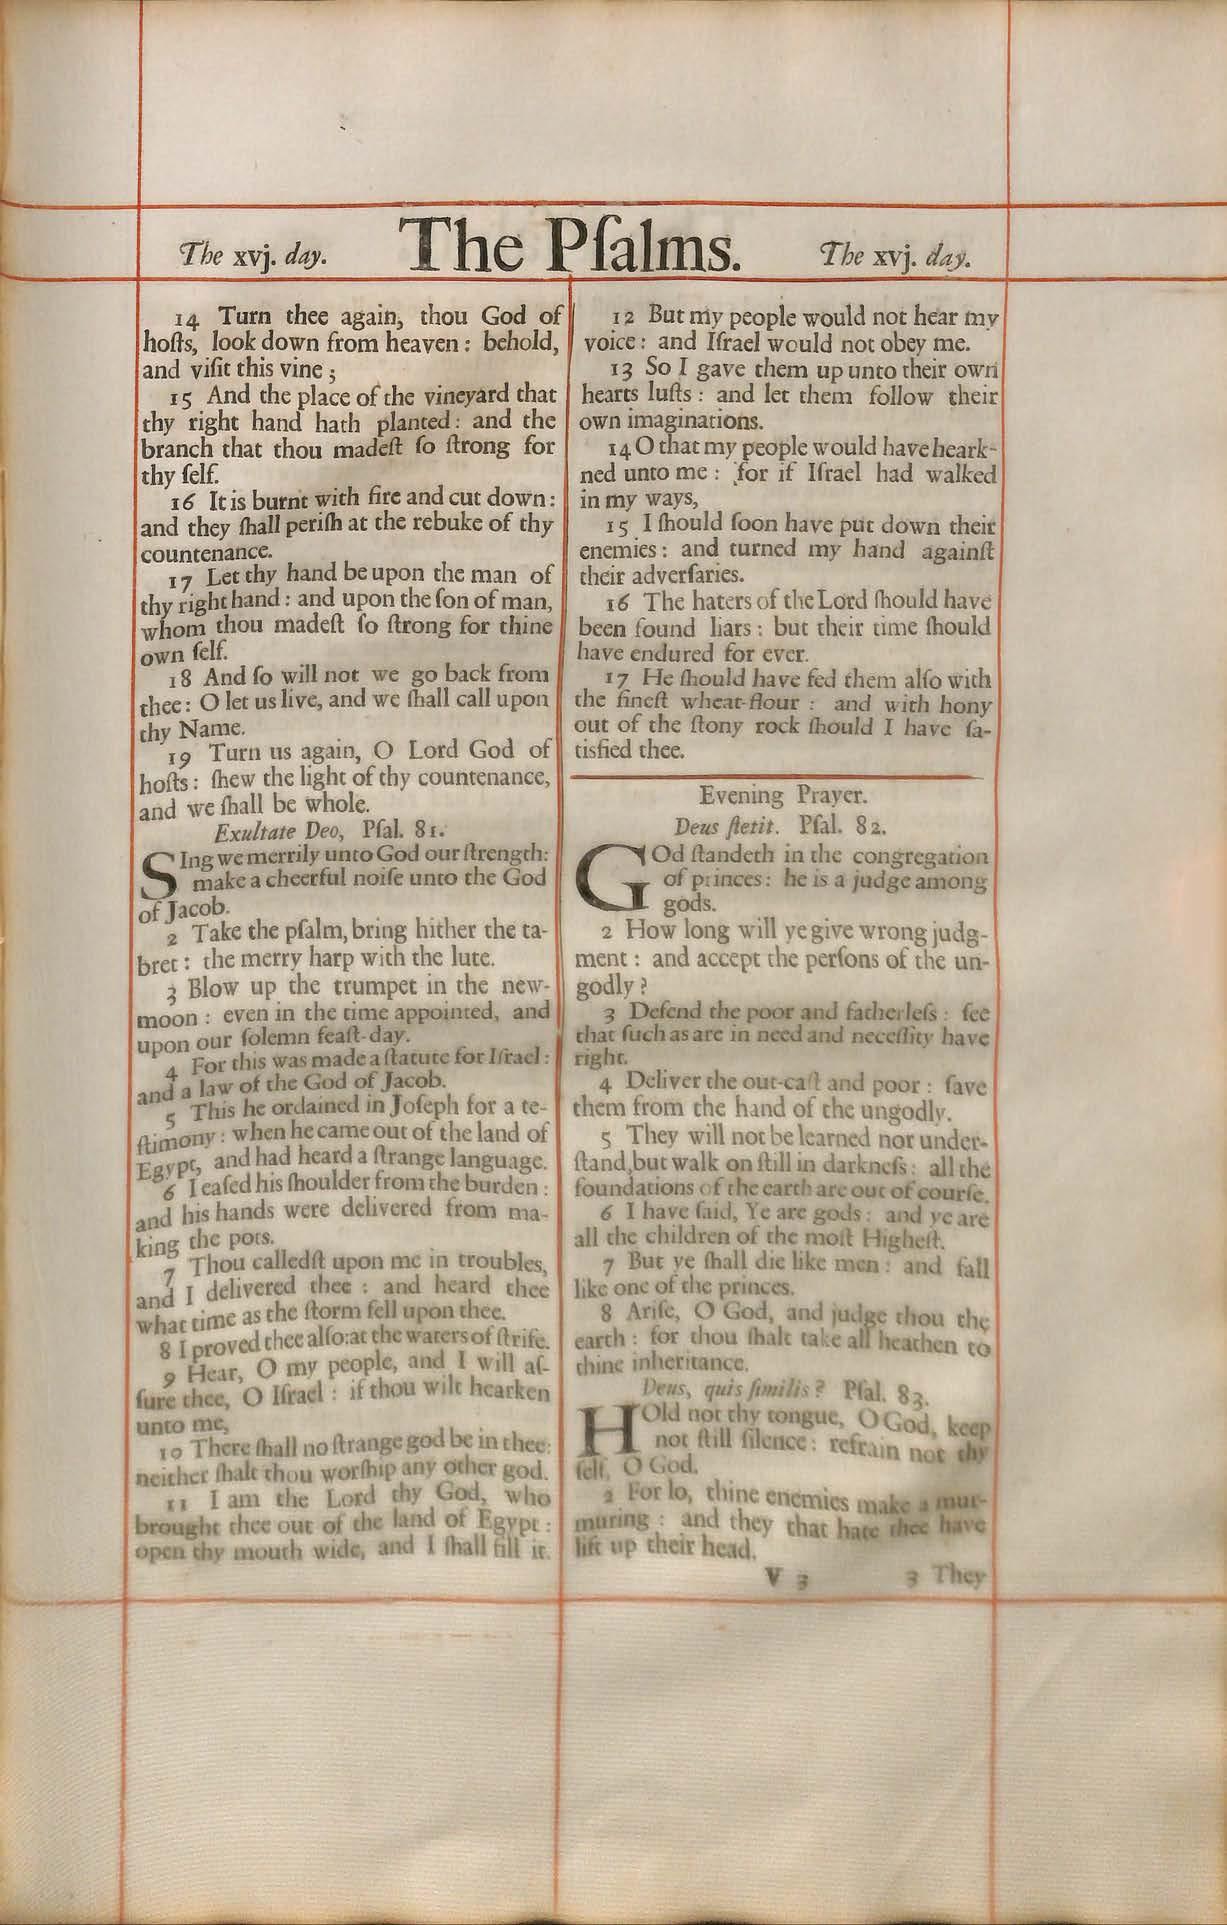 The xvj. day. The Pſalms. The xvj. day.
14 Turn thee again, thou God of
hoſts, look down from heaven : behold,
and viſit this vine ;
15 And the place of the vineyard that
thy right hand hath planted : and the
branch that thou madeſt ſo ſtrong for
thy ſelf.
16 It is burnt with fire and cut down :
and they ſhall periſh at the rebuke of thy
countenance.
17 Let thy hand be upon the man of
thy right hand : and upon the ſon of man,
whom thou madeſt ſo ſtrong for thine
own ſelf.
18 And ſo will not we go back from
thee : O let us live, and we ſhall call upon
thy Name.
19 Turn us again, O Lord God of
hoſts : ſhew the light of thy countenance,
and we ſhall be whole.
Exultate Deo, Pſal. 81.
SIng we merrily unto God our ſtrength:
make a cheerful noiſe unto the God
of Jacob.
2 Take the pſalm, bring hither the ta-
bret : the merry harp with the lute.
3 Blow up the trumpet in the new-
moon : even in the time appointed, and
upon our ſolemn feaſt-day.
4 For this was made a ſtatute for Iſrael :
and a law of the God of Jacob.
5 This he ordained in Joſeph for a te-
ſtimony : when he came out of the land of
Egypt, and had heard a ſtrange language.
6 I eaſed his ſhoulder from the burden :
and his hands were delivered from ma-
king the pots.
7 Thou calledſt upon me in troubles,
and I delivered thee : and heard thee
what time as the ſtorm fell upon thee.
8 I proved thee alſo: at the waters of ſtrife.
9 Hear, O my people, and I will aſ-
ſure thee, O Iſrael : if thou wilt hearken
unto me,
10 There ſhall no ſtrange god be in thee:
neither ſhalt thou worſhip any other god.
11 I am the Lord thy God, who
brought thee out of the land of Egypt :
open thy mouth wide, and I ſhall fill it.
12 But my people would not hear my
voice : and Iſrael would not obey me.
13 So I gave them up unto their own
hearts luſts : and let them follow their
own imaginations.
14 O that my people would have heark-
ned unto me : for if Iſrael had walked
in my ways,
15 I ſhould ſoon have put down their
enemies : and turned my hand againſt
their adverſaries.
16 The haters of the Lord ſhould have
been found liars : but their time ſhould
have endured for ever.
17 He ſhould have fed them alſo with
the fineſt wheat-flour : and with hony
out of the ſtony rock ſhould I have ſa-
tisfied thee.
Evening Prayer.
Deus ſtetit. Pſal. 82.
GOd ſtandeth in the congregation
of princes : he is a judge among
gods.
2 How long will ye give wrong judg-
ment : and accept the perſons of the un-
godly ?
3 Defend the poor and fatherleſs : ſee
that ſuch as are in need and neceſſity have
right.
4 Deliver the out-caſt and poor : ſave
them from the hand of the ungodly.
5 They will not be learned nor under-
ſtand, but walk on ſtill in darkneſs : all the
foundations of the earth are out of courſe.
6 I have ſaid, Ye are gods : and ye are
all the children of the moſt Higheſt.
7 But ye ſhall die like men : and fall
like one of the princes.
8 Ariſe, O God, and judge thou the
earth : for thou ſhalt take all heathen to
thine inheritance.
Deus, quis ſimilis ? Pſal. 83.
HOld not thy tongue, O God, keep
not ſtill ſilence : refrain not thy
ſelf, O God.
2 For lo, thine enemies make a mur-
muring : and they that hate thee have
lift up their head.
V 3 3 They